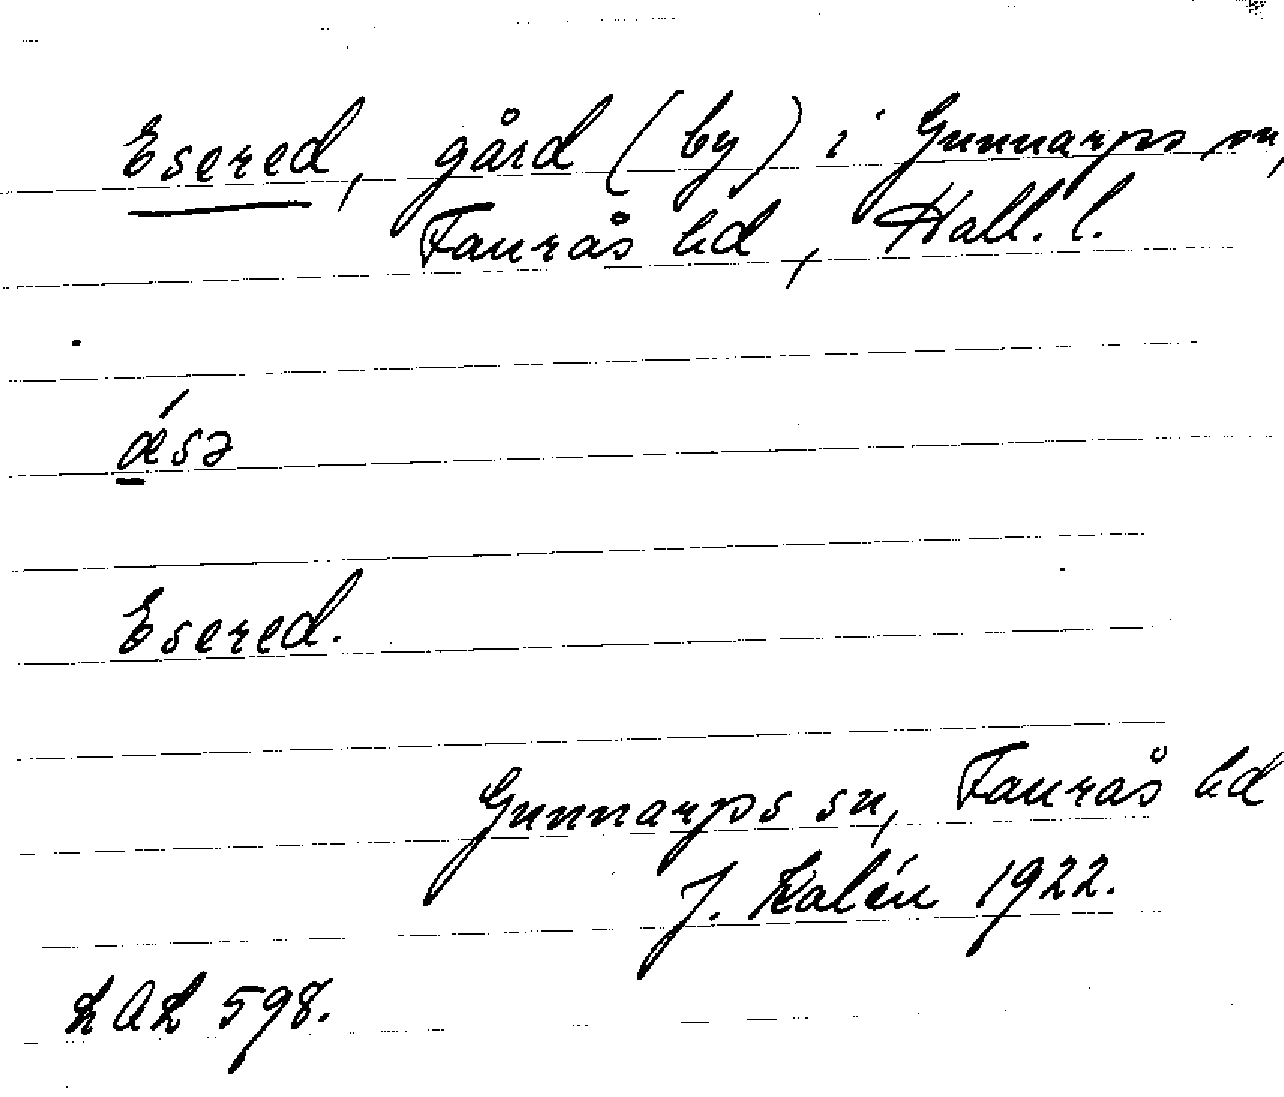 Esered, gård (by) i Gunnarps sn,
Faurås hd, Hall. l.
ǽsə
Esered.
Gunnarps sn, Faurås hd
J. Kalén 1922.
LAL 598.